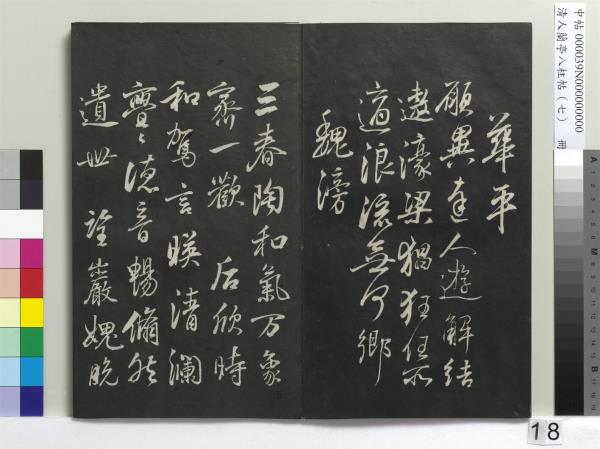 中帖 000039N000000000
清人蘭亭八柱帖（七） 冊
華平
願與達人遊解結
遨濠梁猖狂任所
適浪流無何鄉
魏滂
三春陶和氣万象
齊一歡 后欣時
和駕言暎清瀾
亹〻德音暢翛然
遺世 詮巖愧脫
18